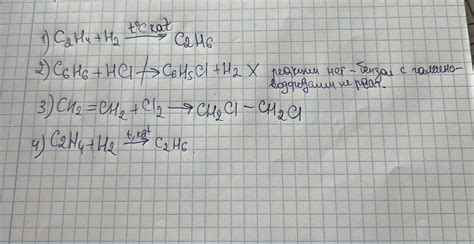 1) C₂H₄ + H₂ —t°C kat→ C₂H₆
2) C₆H₆ + HCl ↛ C₆H₅Cl + H₂ X реакции нет - бензол с галогено-
водородами не реаг.
3) CH₂=CH₂ + Cl₂ → CH₂Cl - CH₂Cl
4) C₂H₄ + H₂ —t, kat→ C₂H₆